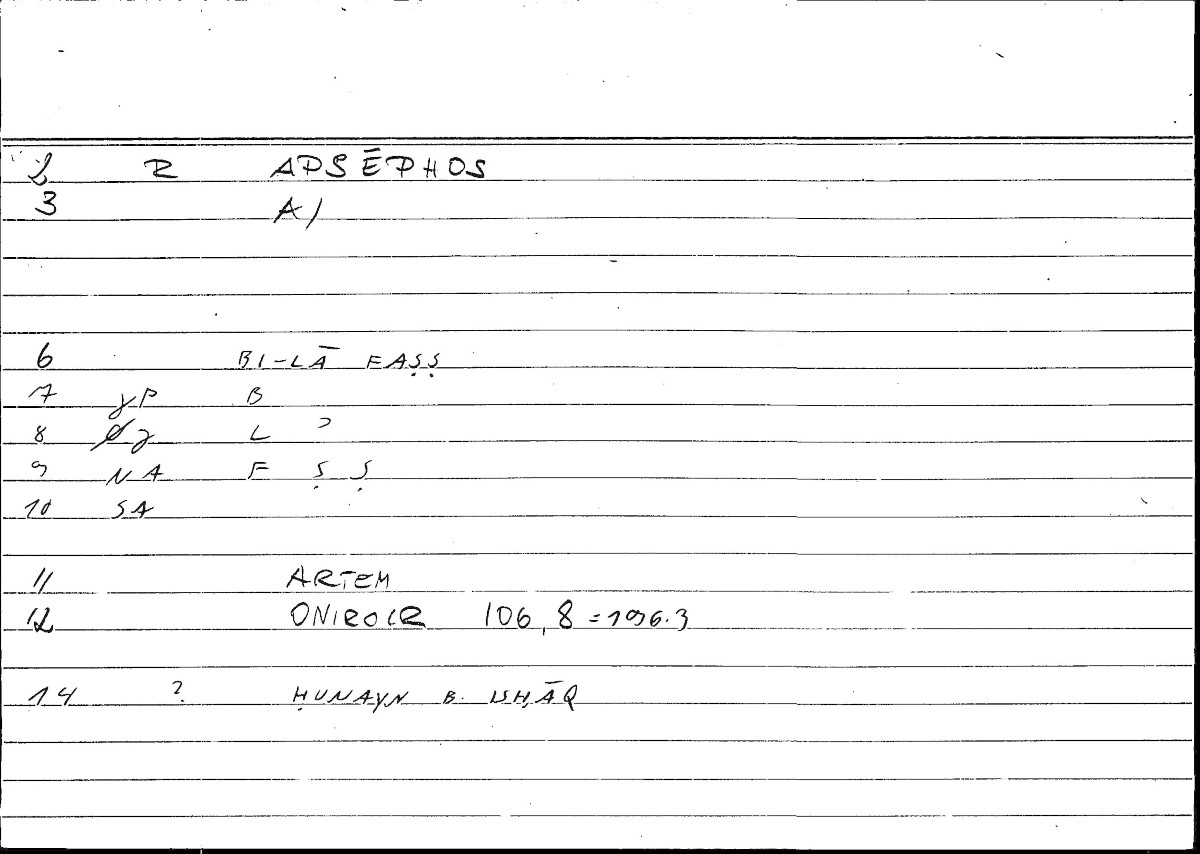 2 R APSĒPHOS
3 A/
6 BI-LĀ FAṢṢ
7 gP B
8 L ʾ
9 NA F Ṣ Ṣ
10 SA
11 ARTEM
12 ONIROCR 106,8 = 196.3
14 ? ḤUNAYN B. ISḤĀQ